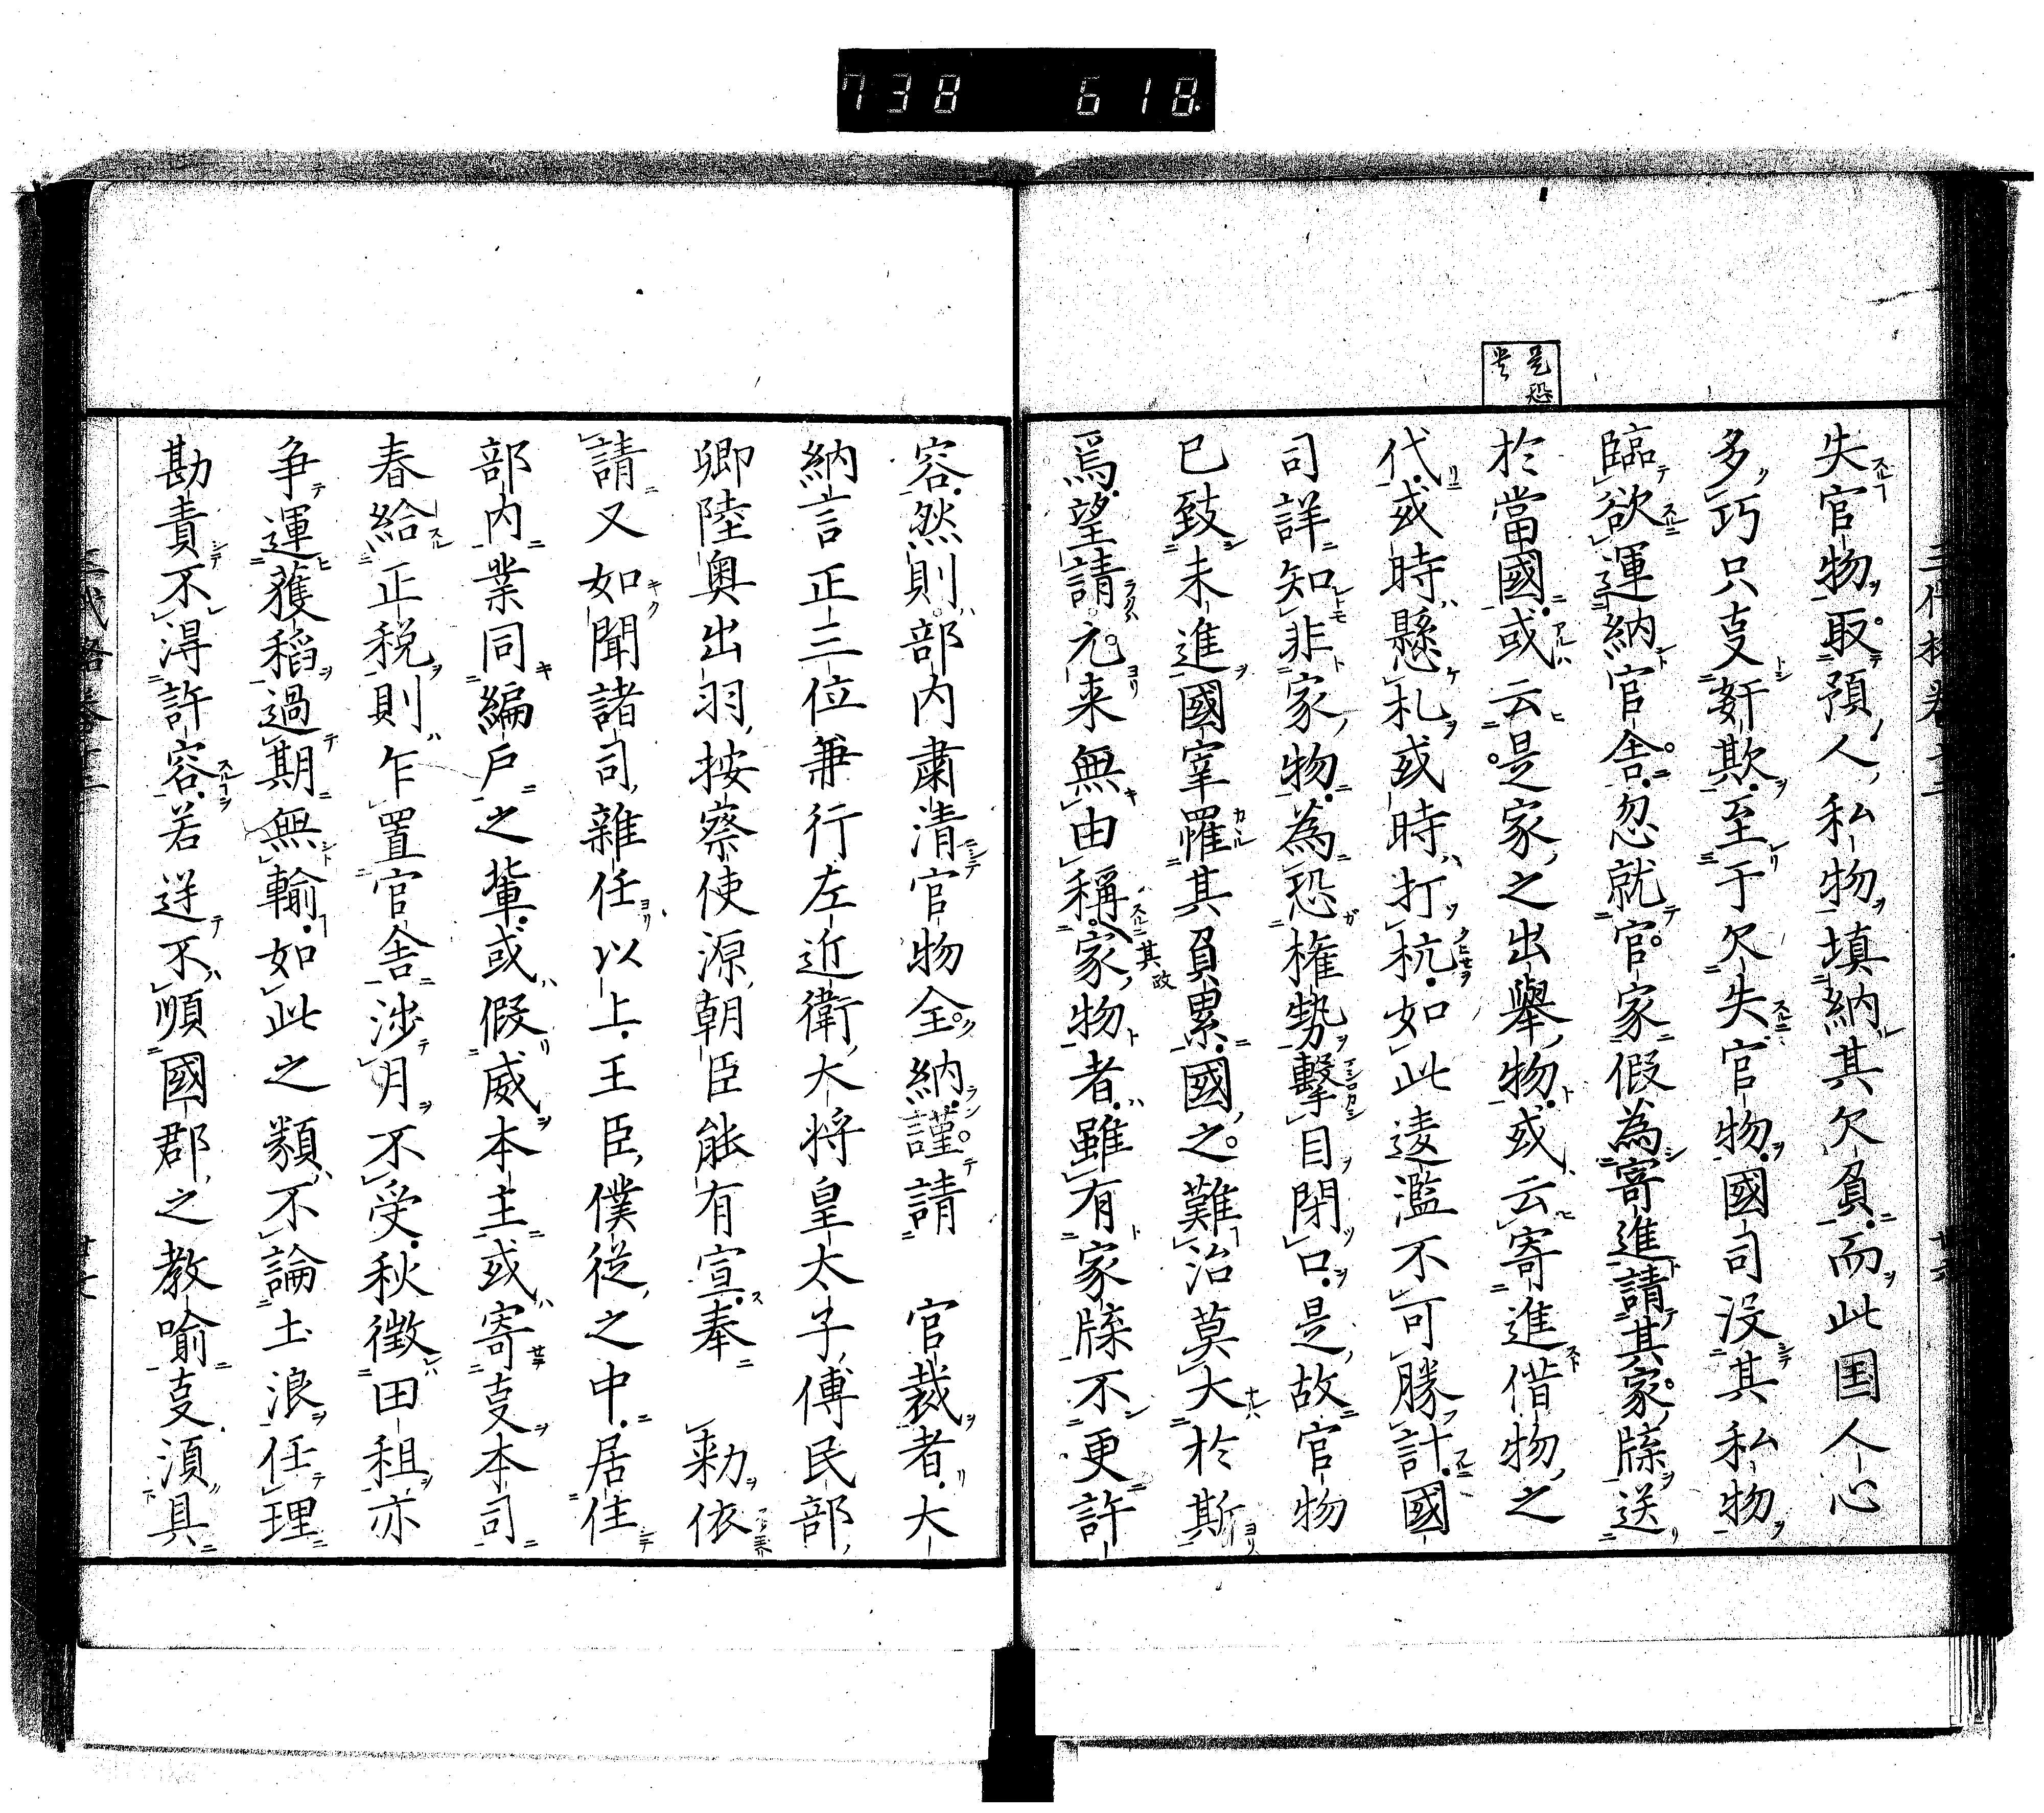 738 618
失官物取預人私物填納其欠負而此国人心
多巧只㕝姧欺至于欠失官物國司没其私物
臨欲運納官舎忽就官家假為寄進請其家牒送
於當國或云是家之出舉物或云寄進借物之
代或時懸札或時打杭如此淩濫不可勝計國
司詳知非家物為恐権勢擊目閉口是故官物
已致未進國宰罹其負累國之難治莫大於斯
焉望請元来無由稱家物者雖有家牒不更許
容然則部内粛清官物全納謹請 官裁者大
納言正三位兼行左近衛大将皇太子傅民部
卿陸奥出羽按察使源朝臣能有宣奉 勅依
請又如聞諸司雜任以上王臣僕從之中居住
部内業同編戸之輩或假威本主或寄㕝本司
春給正税則乍置官舎渉月不受秋徴田租亦
争運獲稻過期無輸如此之類不論土浪任理
勘責不得許容若逆不順國郡之教喩㕝須具